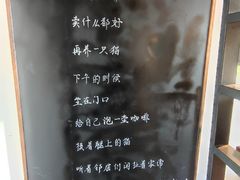 卖什么都好
再养一只猫
下午的时候
坐在门口
给自己泡一壶咖啡
摸着腿上的猫
听着邻居们闲扯着家常